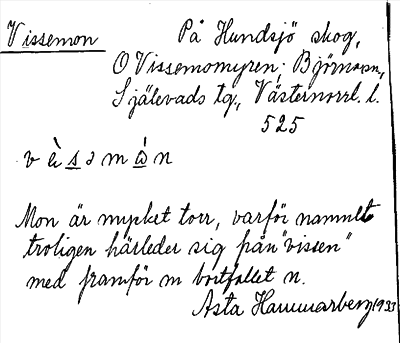 Vissemon
På Hundsjö skog,
O Vissemomyren; Björnavn,
Själevads tg., Västernorrl. l.
525
v è s ɔ m à n
Mon är mycket torr, varför namnet
troligen härleder sig från "vissen"
med framför m bortfallet n.
Asta Hammarberg 1933